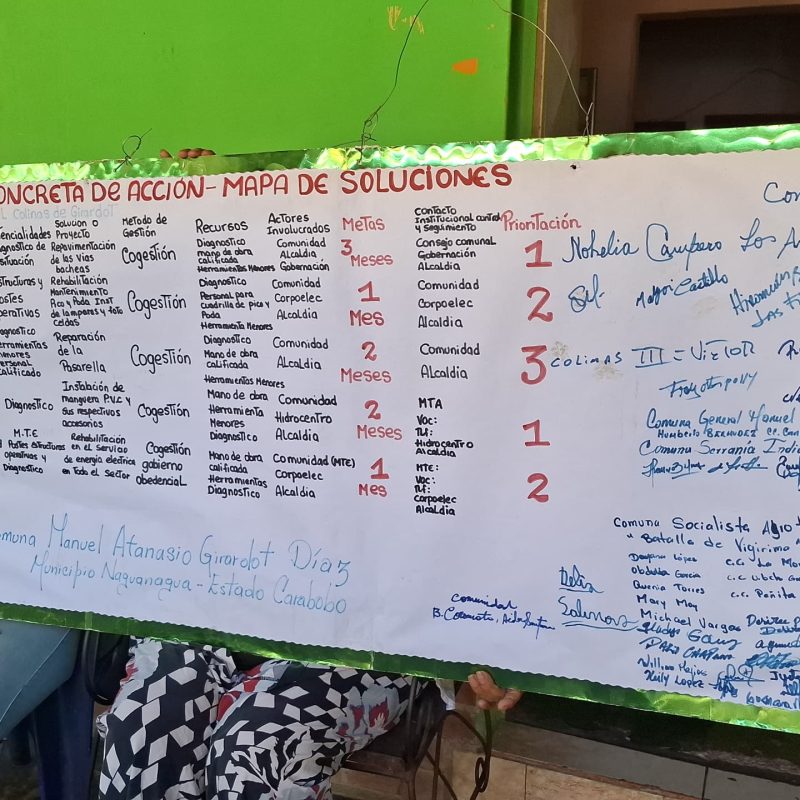 CONCRETA DE ACCIÓN - MAPA DE SOLUCIONES
Colinas de Girardot
Solución o Proyecto
Metodo de Gestión
Recursos
Actores Involucrados
Metas
Contacto Institucional
y seguimiento
Prioritación
Repavimentación
de las Vias
bacheas
Cogestión
Diagnostico
mano de obra
calificada
Herramientas Menores
Comunidad
Alcaldia
Gobernación
3
Meses
Consejo comunal
Gobernación
Alcaldia
1
Rehabilitación
Mantenimiento
Pica y Poda Inst
de lamparas y foto
Celdas
Cogestión
Diagnostico
Personal para
cuadrilla de pica y
Poda
Herramienta Menores
Comunidad
Corpoelec
Alcaldia
1
Mes
Comunidad
Corpoelec
Alcaldia
2
Reparación
de la
Pasarella
Cogestión
Diagnostico
Mano de obra
calificada
Herramientas Menores
Comunidad
Alcaldia
2
Meses
Comunidad
Alcaldia
3
Diagnostico
Instalación de
manguera P.V.C y
sus respectivos
accesorios
Cogestión
Mano de obra
Herramienta
Menores
Diagnostico
Comunidad
Hidrocentro
Alcaldia
2
Meses
MTA
Voc:
Tlf:
Hidrocentro
Alcaldia
1
M.T.E
Postes estructuras
operativos y
Diagnostico
Rehabilitación
en el Servicio
de energia electrica
en Todo el Sector
Cogestión
gobierno
obedencial
Mano de obra
calificada
Herramientas
Diagnostico
Comunidad (MTE)
Corpoelec
Alcaldia
1
Mes
MTE:
Voc:
Tlf:
Corpoelec
Alcaldia
2
Comuna Manuel Atanasio Girardot Díaz
Municipio Naguanagua - Estado Carabobo
Nohelia Camparo Los
Mayori Castillo
COLINAS III = VICTOR
Comuna General Manuel
Humberto BERMUDEZ
Comuna Serranía
Comuna Socialista Agro
"Batalla de Vigirima
Obdulia Garcia
Torres
Mary May
Michael Vargas
Gladys
William Mejias
Keily LOPEZ
Comunidad